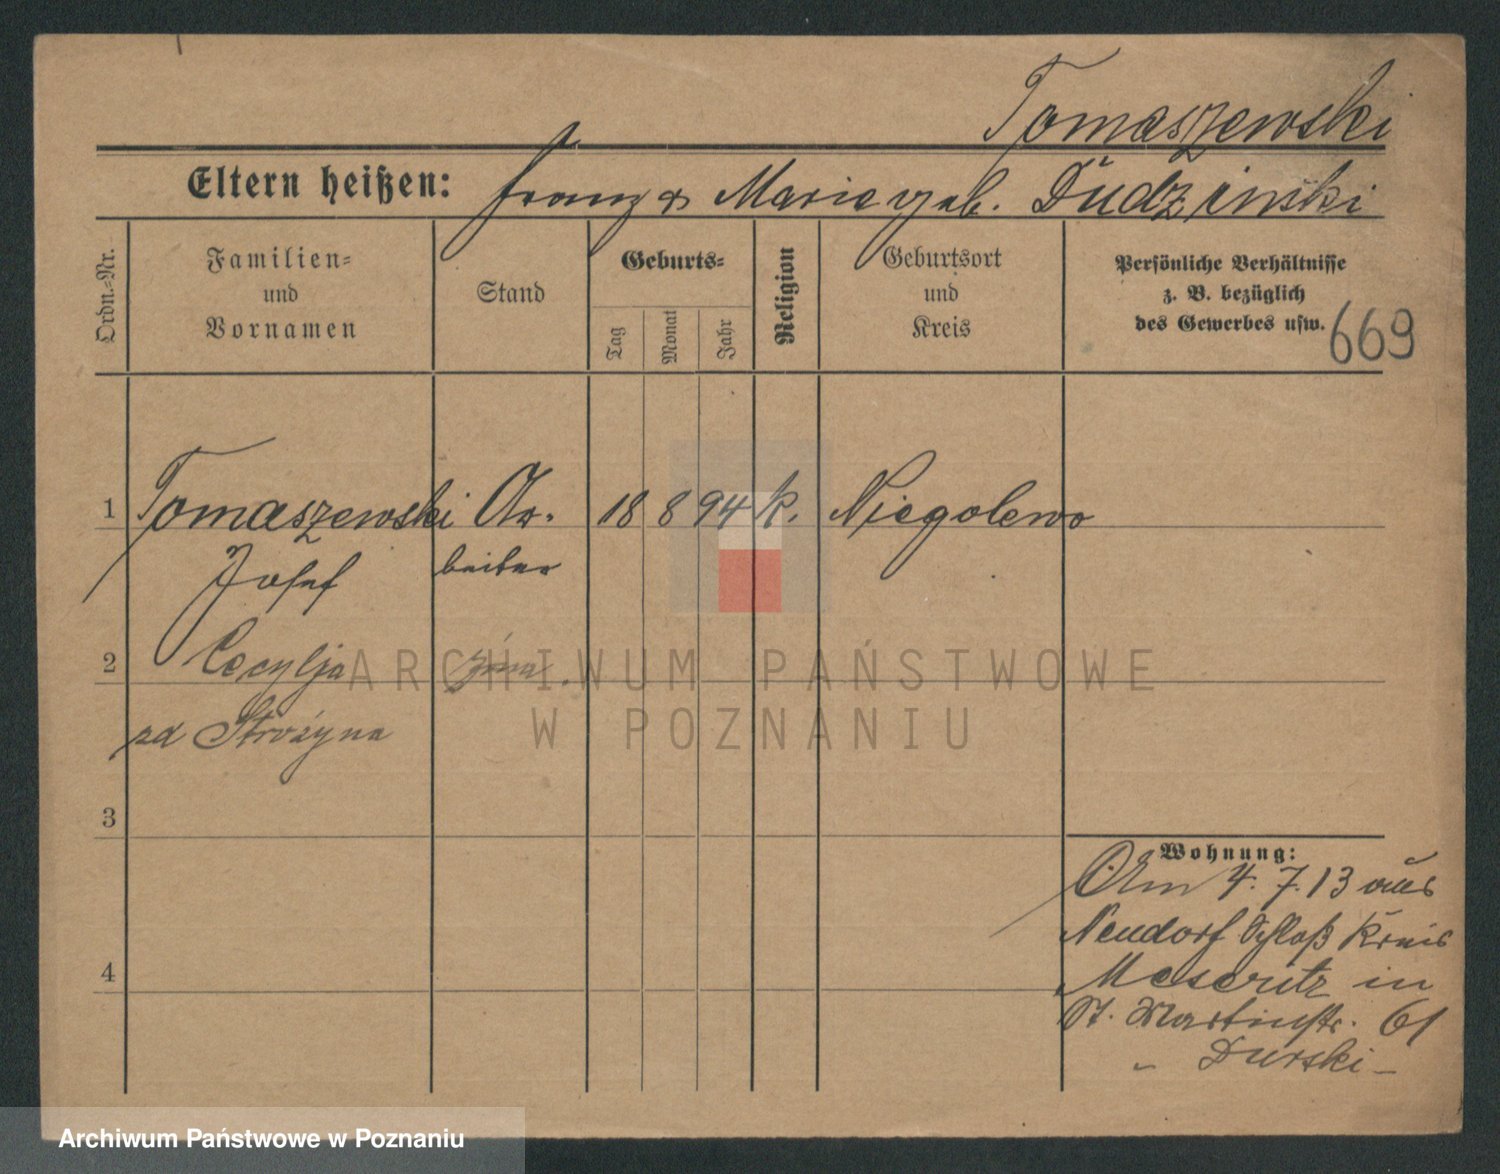 Tomaszewski
Eltern heißen: Franz & Marie geb. Dudzinski
Ordn.-Nr.
Familien- und Vornamen
Stand
Geburts-
Tag
Monat
Jahr
Religion
Geburtsort und Kreis
Persönliche Verhältnisse
z. B. bezüglich
des Gewerbes usw.
669
1 Tomaszewski Ar- 18 8 94 k. Niegolewo
Josef beiter
2 Cecylja żona
zd Strożyna
3
4
Wohnung:
Am 4.7.13 aus
Neudorf Schloß Kreis
Meseritz in
St. Martinstr. 61
- Durski -
ARCHIWUM PAŃSTWOWE
W POZNANIU
Archiwum Państwowe w Poznaniu